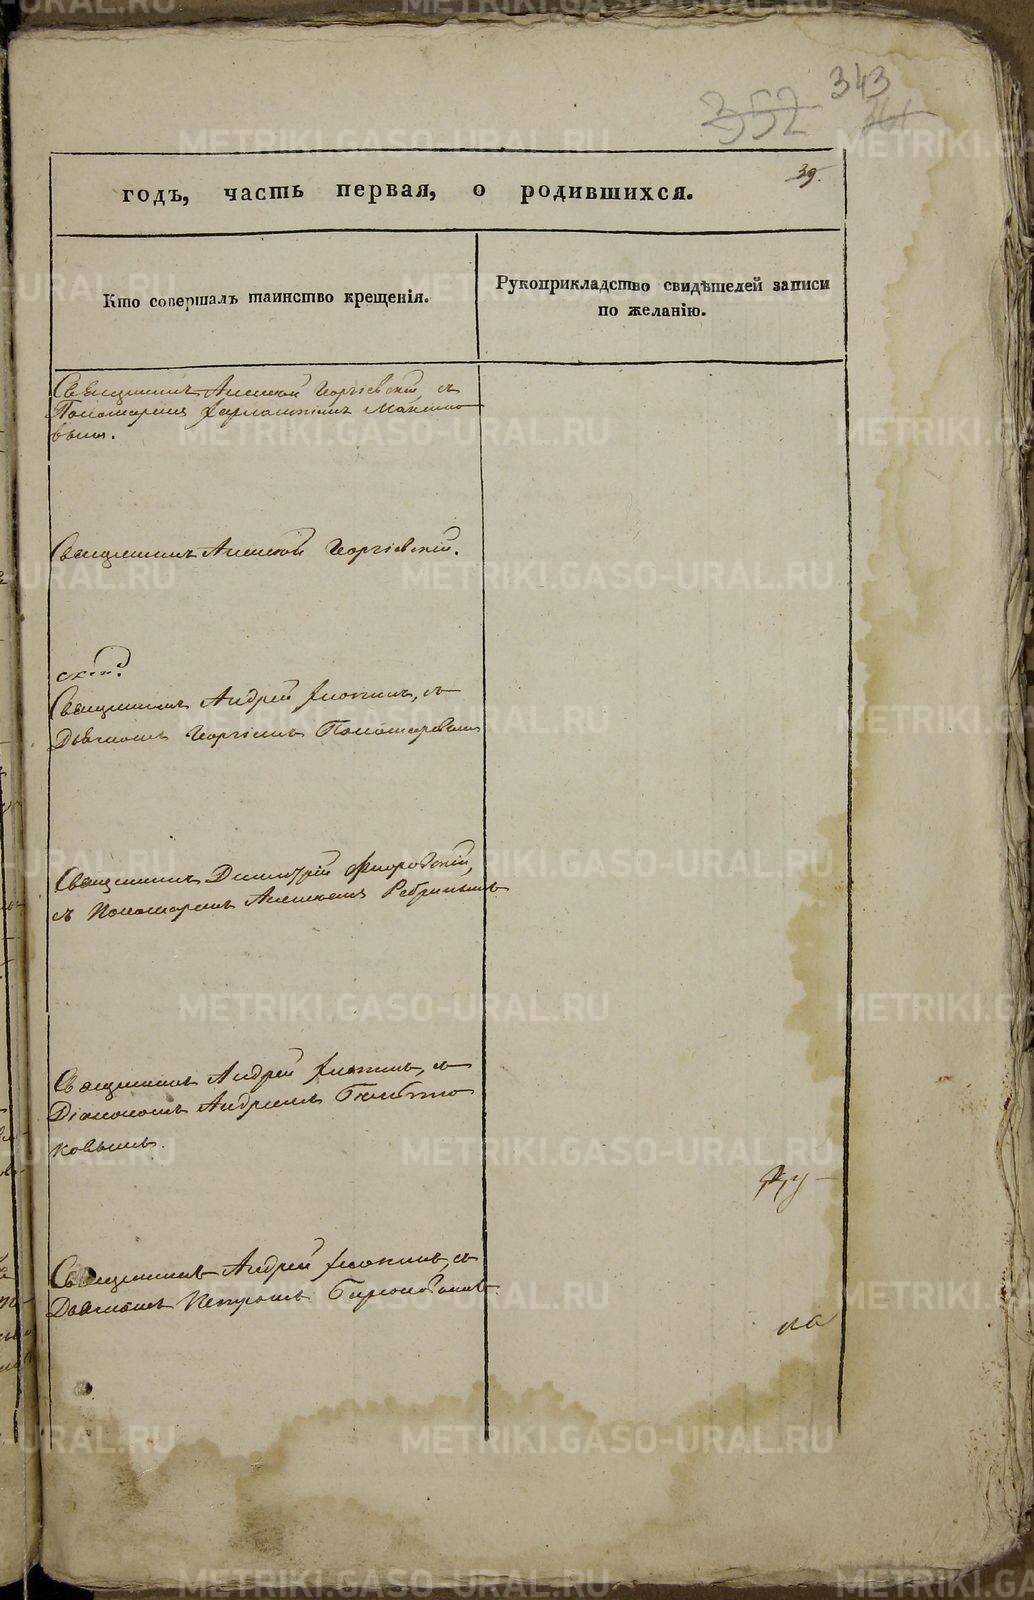 352 343
39.
годъ, часть первая, о родившихся.
Кто совершалъ таинство крещенія.
Рукоприкладство свидѣтелей записи
по желанію.
Священникъ Алексѣй Георгіевскій, съ
Пономаремъ Харлампіемъ Максимо
вымъ.
Священникъ Алексѣй Георгіевскій.
Священникъ Андрей съ
Дьячкомъ Георгіемъ Пономаревымъ
Священникъ Димитрій Флоровскій,
съ Пономаремъ Алексѣемъ Ребринымъ
Священникъ Андрей съ
Діакономъ Андреемъ
ковымъ.
Священникъ Андрей съ
Дьячкомъ Петромъ
METRIKI.GASO-URAL.RU